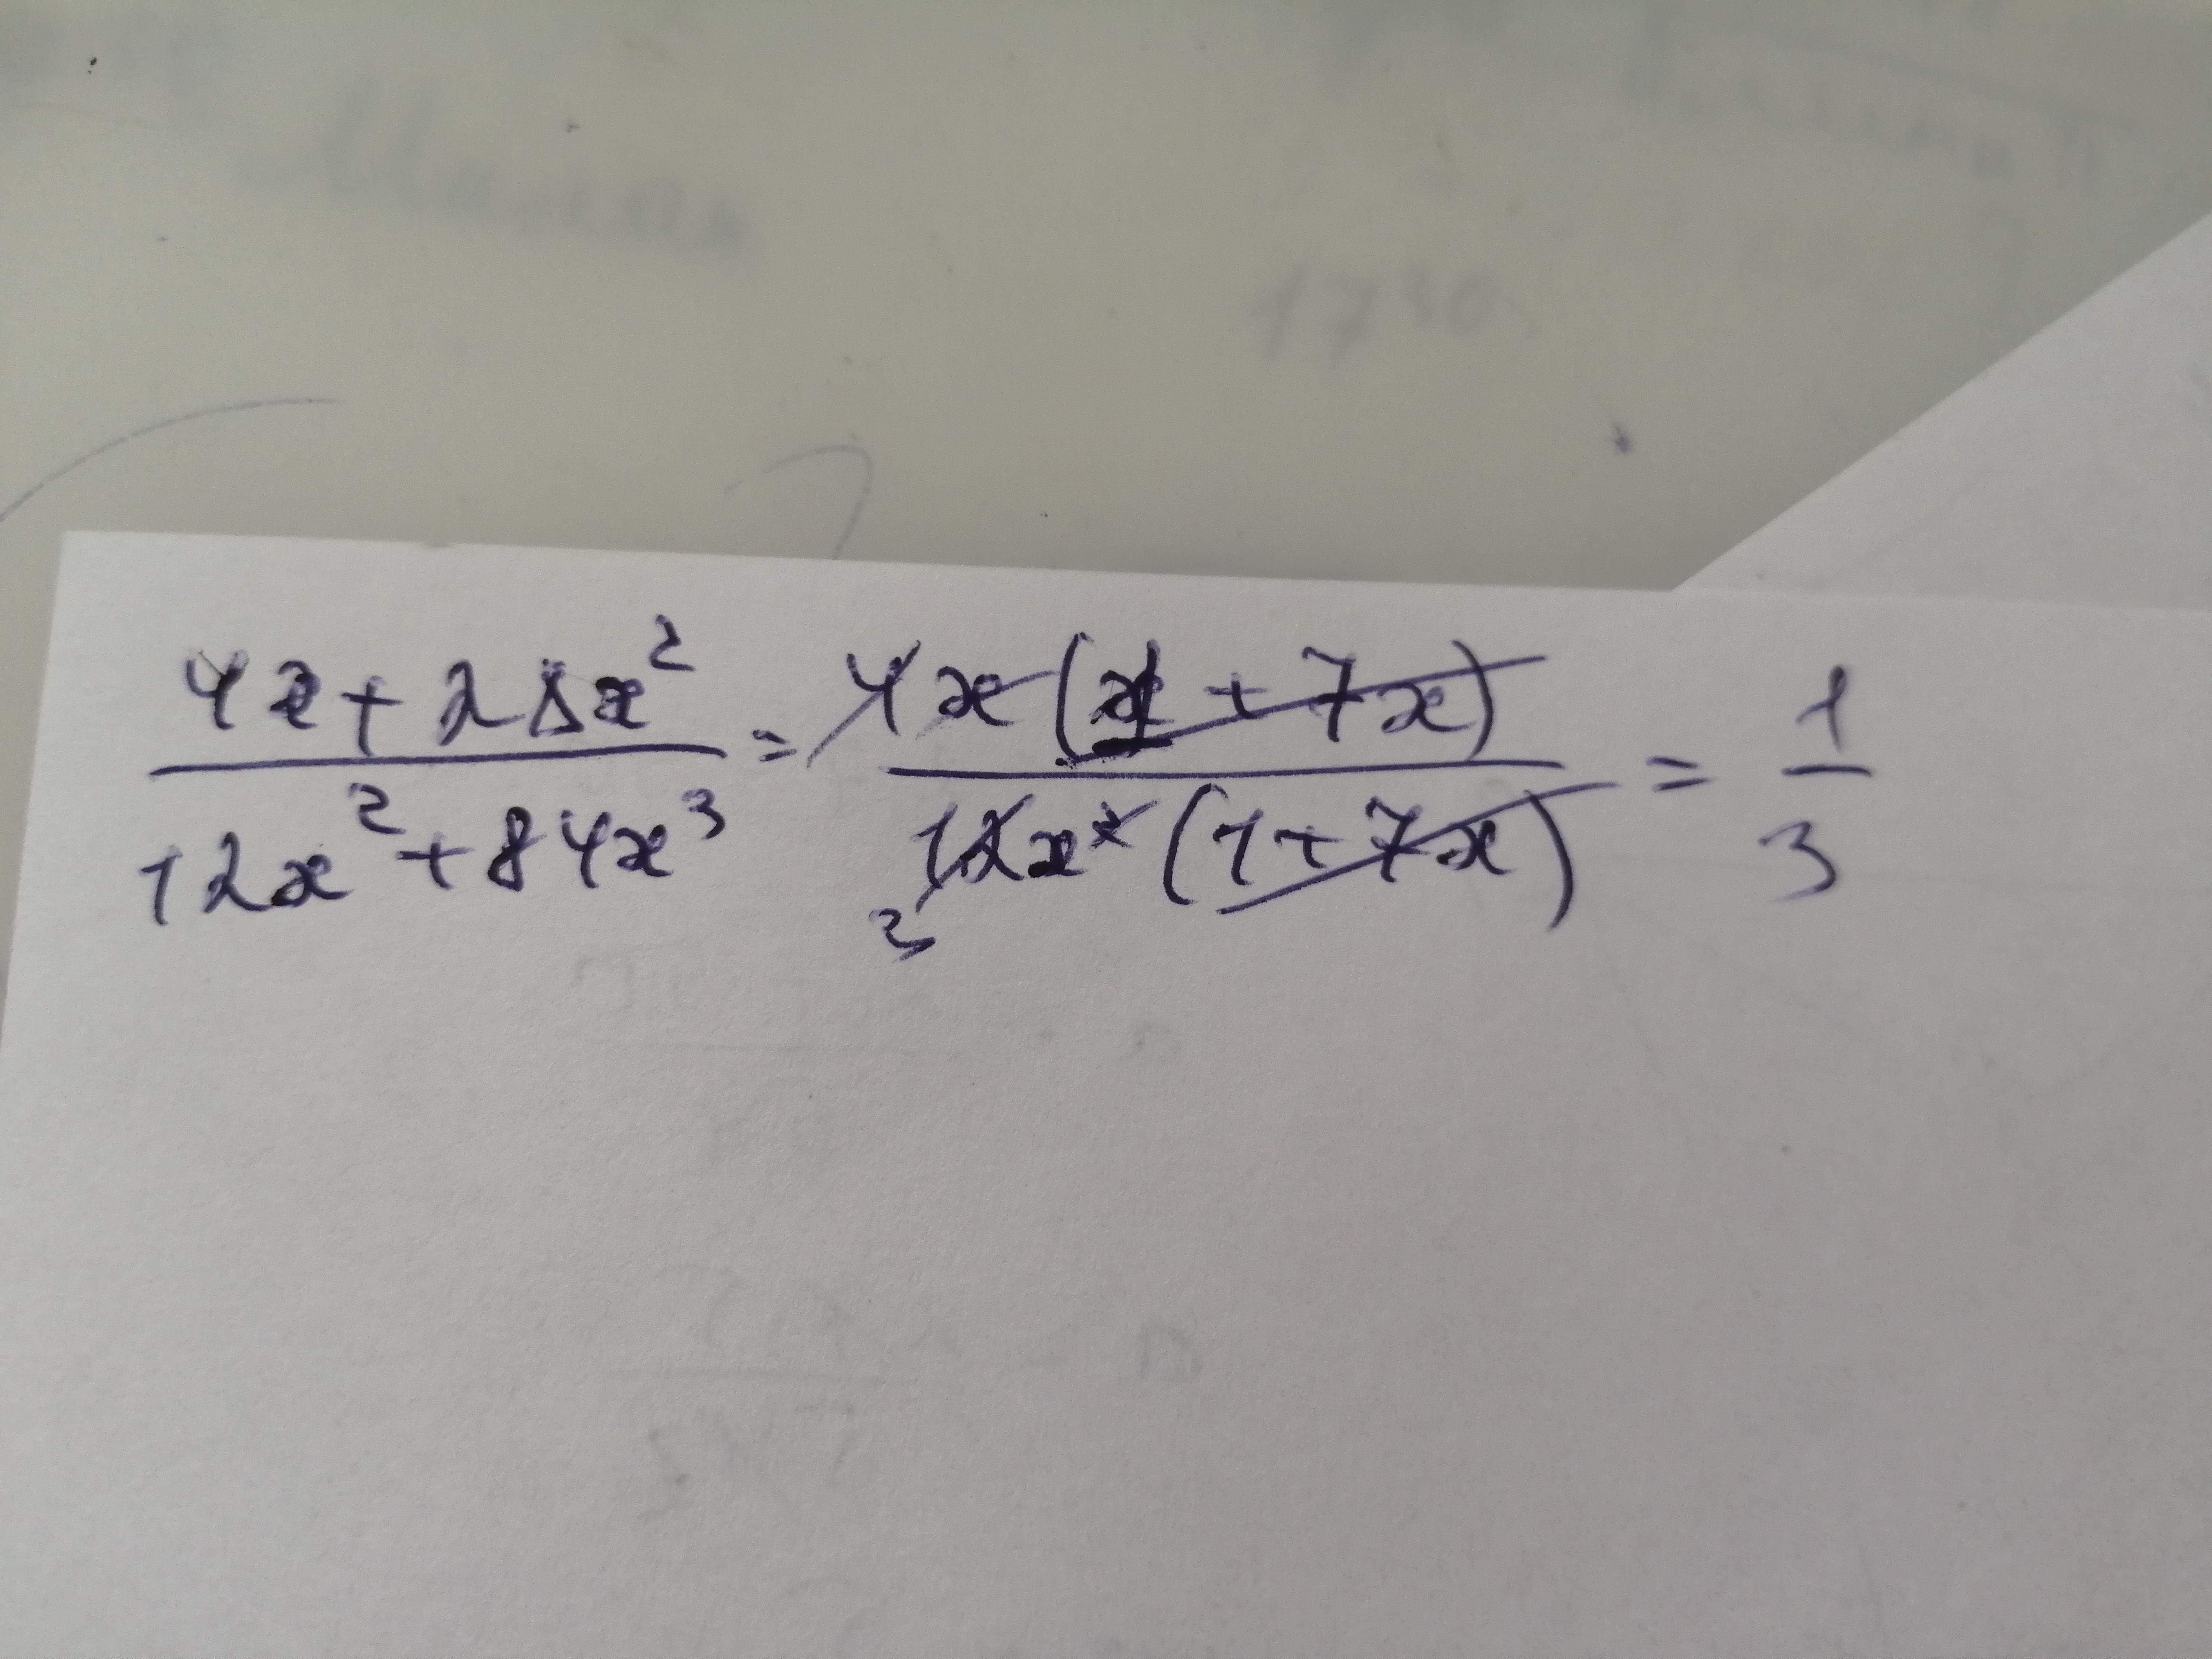 1730
(4x + 28x²)/(12x² + 84x³) = 4x(1 + 7x)/12x²(1 + 7x) = 1/3
3